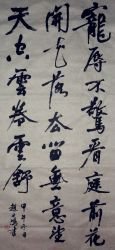 寵辱不驚看庭前花
開花落去留無意望
天空雲卷雲舒
甲午